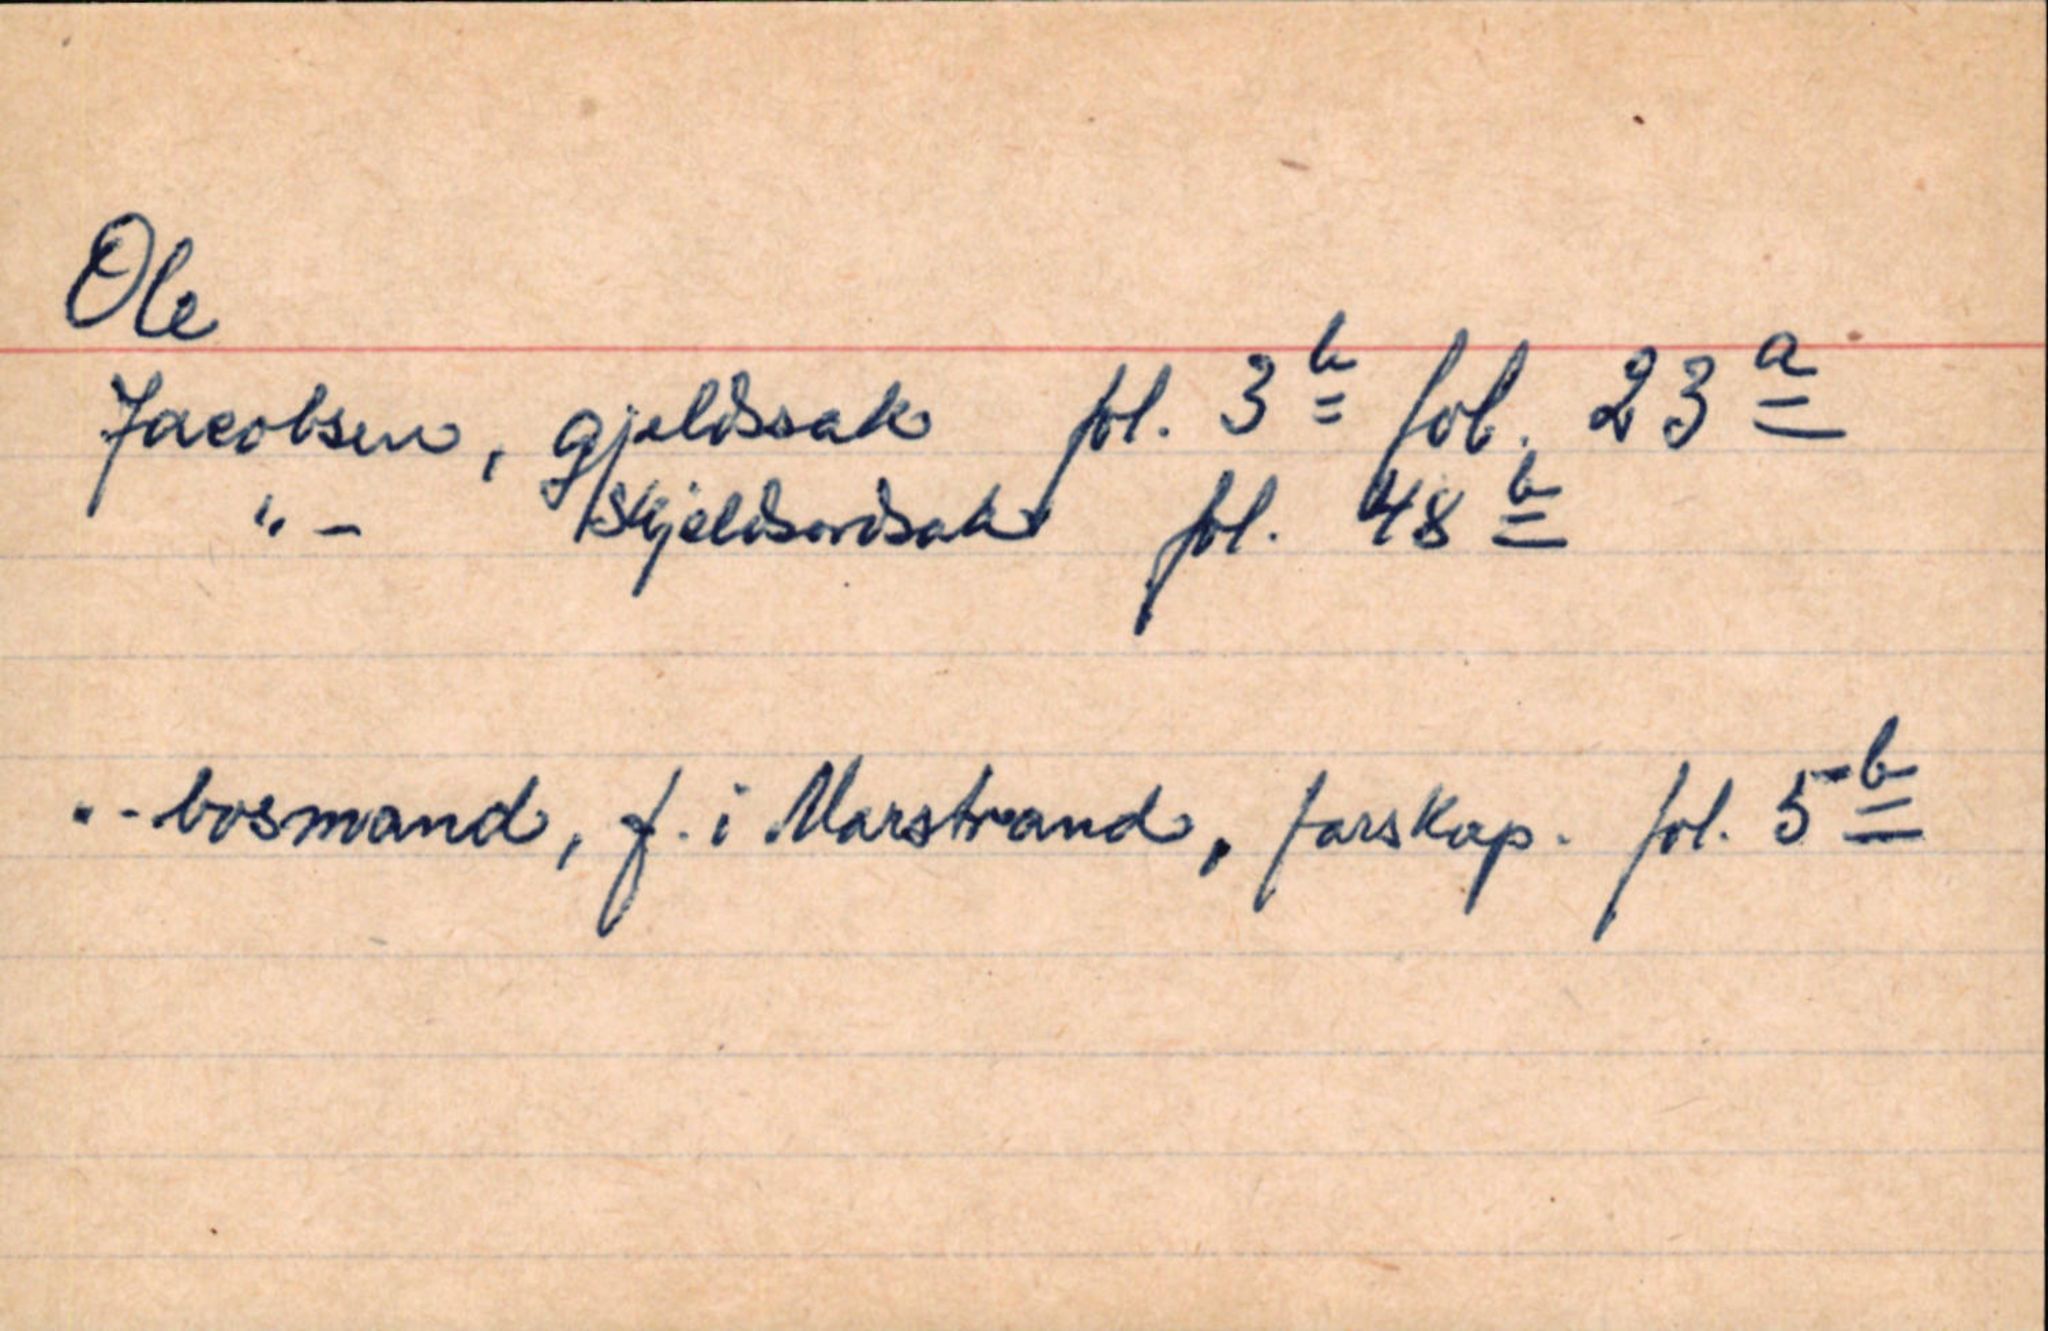 Ole
Jacobsen, gjeldssak fol. 3 b fol. 23 a
" - skjeldsordsak fol. 48 b
" - bosmand, f. i Marstrand, farskap. fol. 5 b